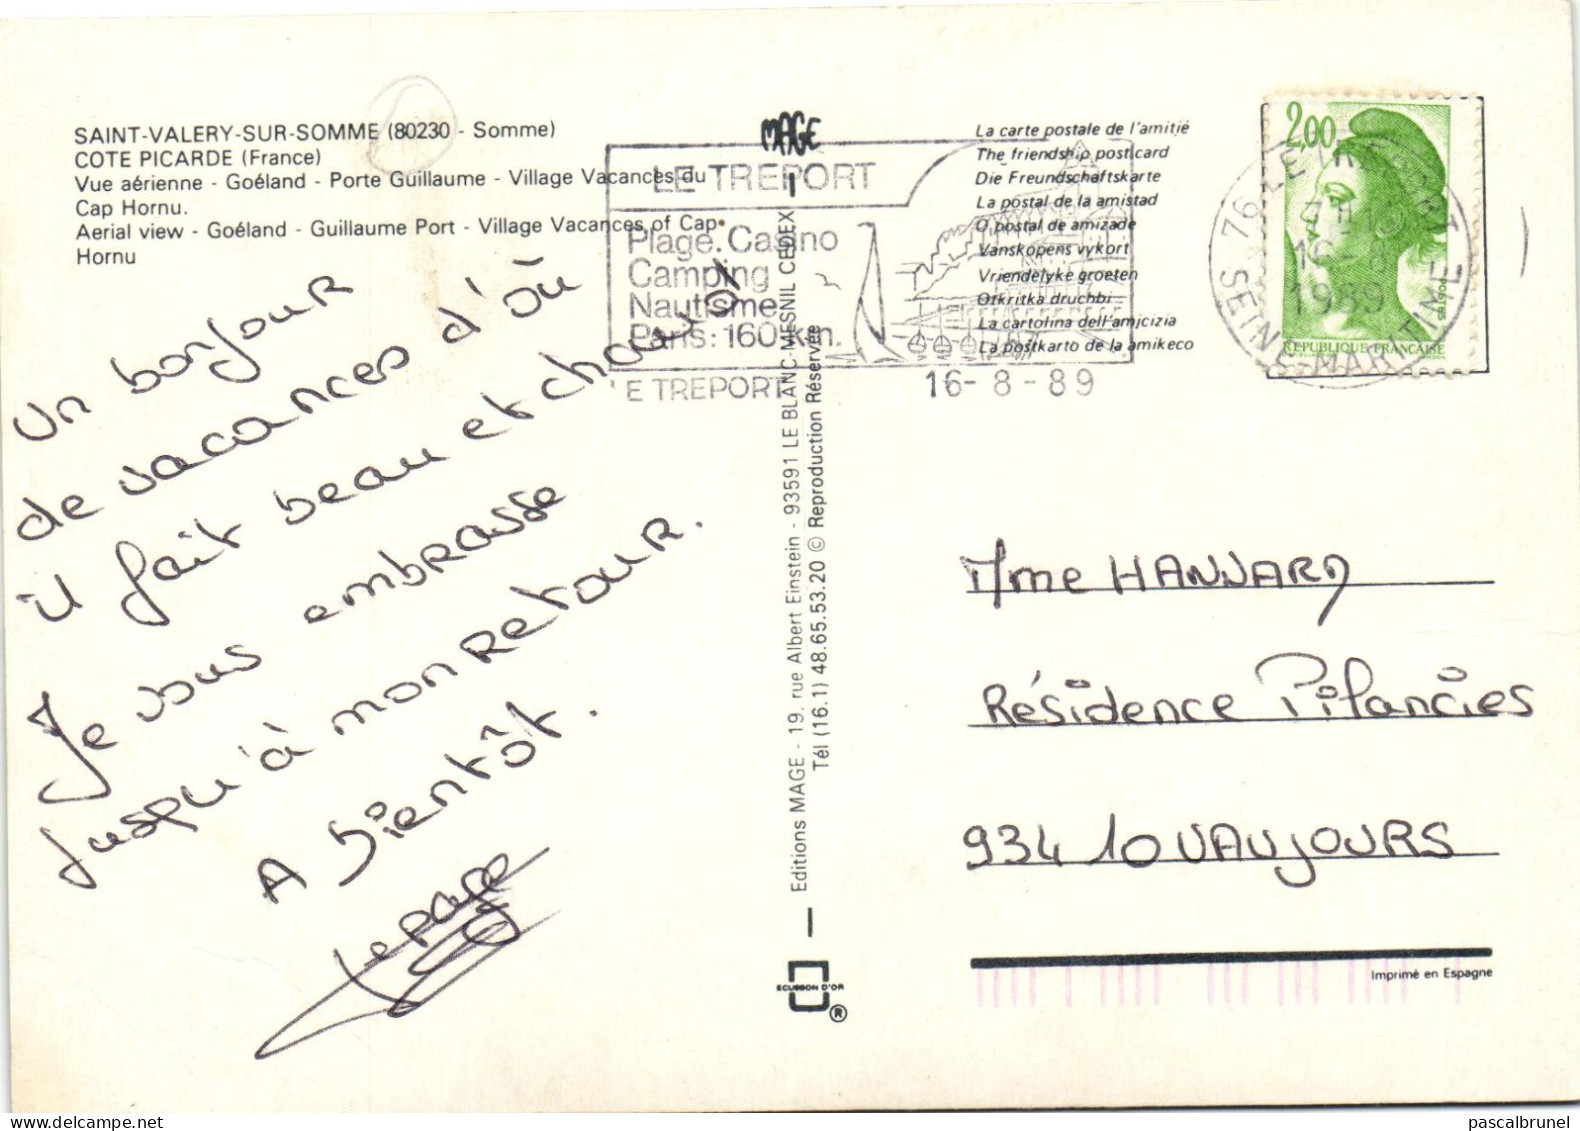 SAINT-VALERY-SUR-SOMME (80230 - Somme)
COTE PICARDE (France)
Vue aérienne - Goéland - Porte Guillaume - Village Vacances du
Cap Hornu.
Aerial view - Goéland - Guillaume Port - Village Vacances of Cap
Hornu
Un bonjour
de vacances d'où
il fait beau et chaud
Je vous embrasse
Jusqu'à mon retour.
A bientôt.
Lepage
MAGE
LE TREPORT
Plage. Casino
Camping
Nautisme
Paris: 160 km.
LE TREPORT
16-8-89
Editions MAGE - 19, rue Albert Einstein - 93591 LE BLANC-MESNIL CEDEX
Tél (16.1) 48.65.53.20 © Reproduction Réservée
ECUSSON D'OR
®
La carte postale de l'amitié
The friendship postcard
Die Freundschaftskarte
La postal de la amistad
O postal de amizade
Vanskopens vykort
Vriendelyke groeten
Otkritka druchbi
La cartolina dell'amicizia
La postkarto de la amikeco
2,00
REPUBLIQUE FRANÇAISE
76 LE TREPORT
16-8
1989
SEINE-MARITIME
Mme HANNARD
Résidence Pifancies
93410 VAUJOURS
Imprimé en Espagne
pascalbrunel